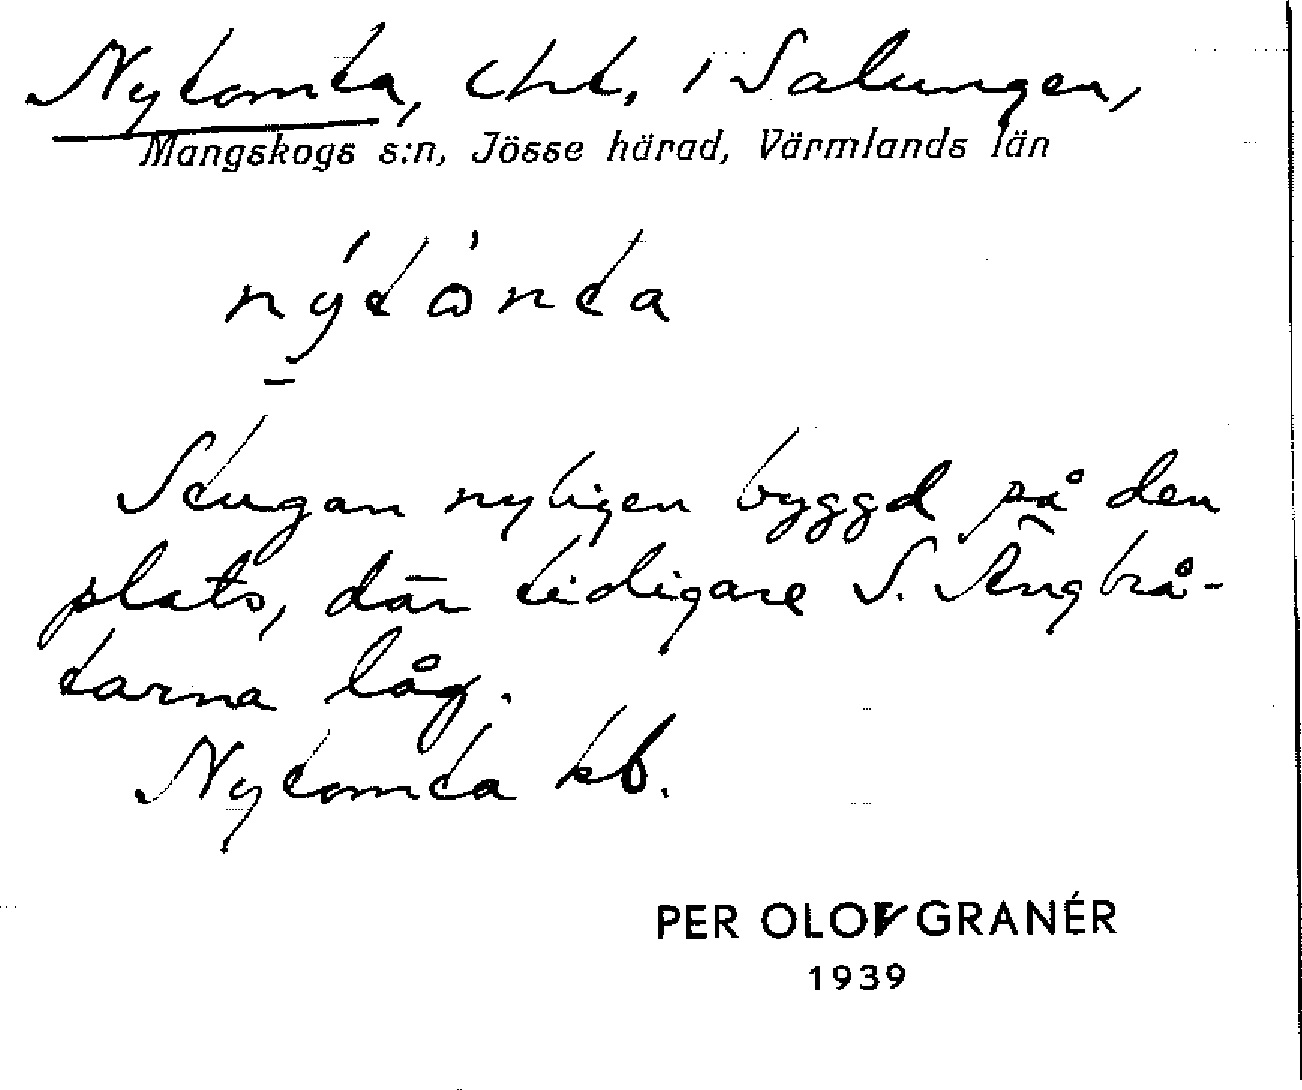 Nytomta, lht. i Salungen,
Mangskogs s:n, Jösse härad, Värmlands län
nýtὼnta
Stugan nyligen byggd på den
plats, där tidigare S. Ängbrå-
tarna låg.
Nytomta kb.
PER OLOF GRANÉR
1939